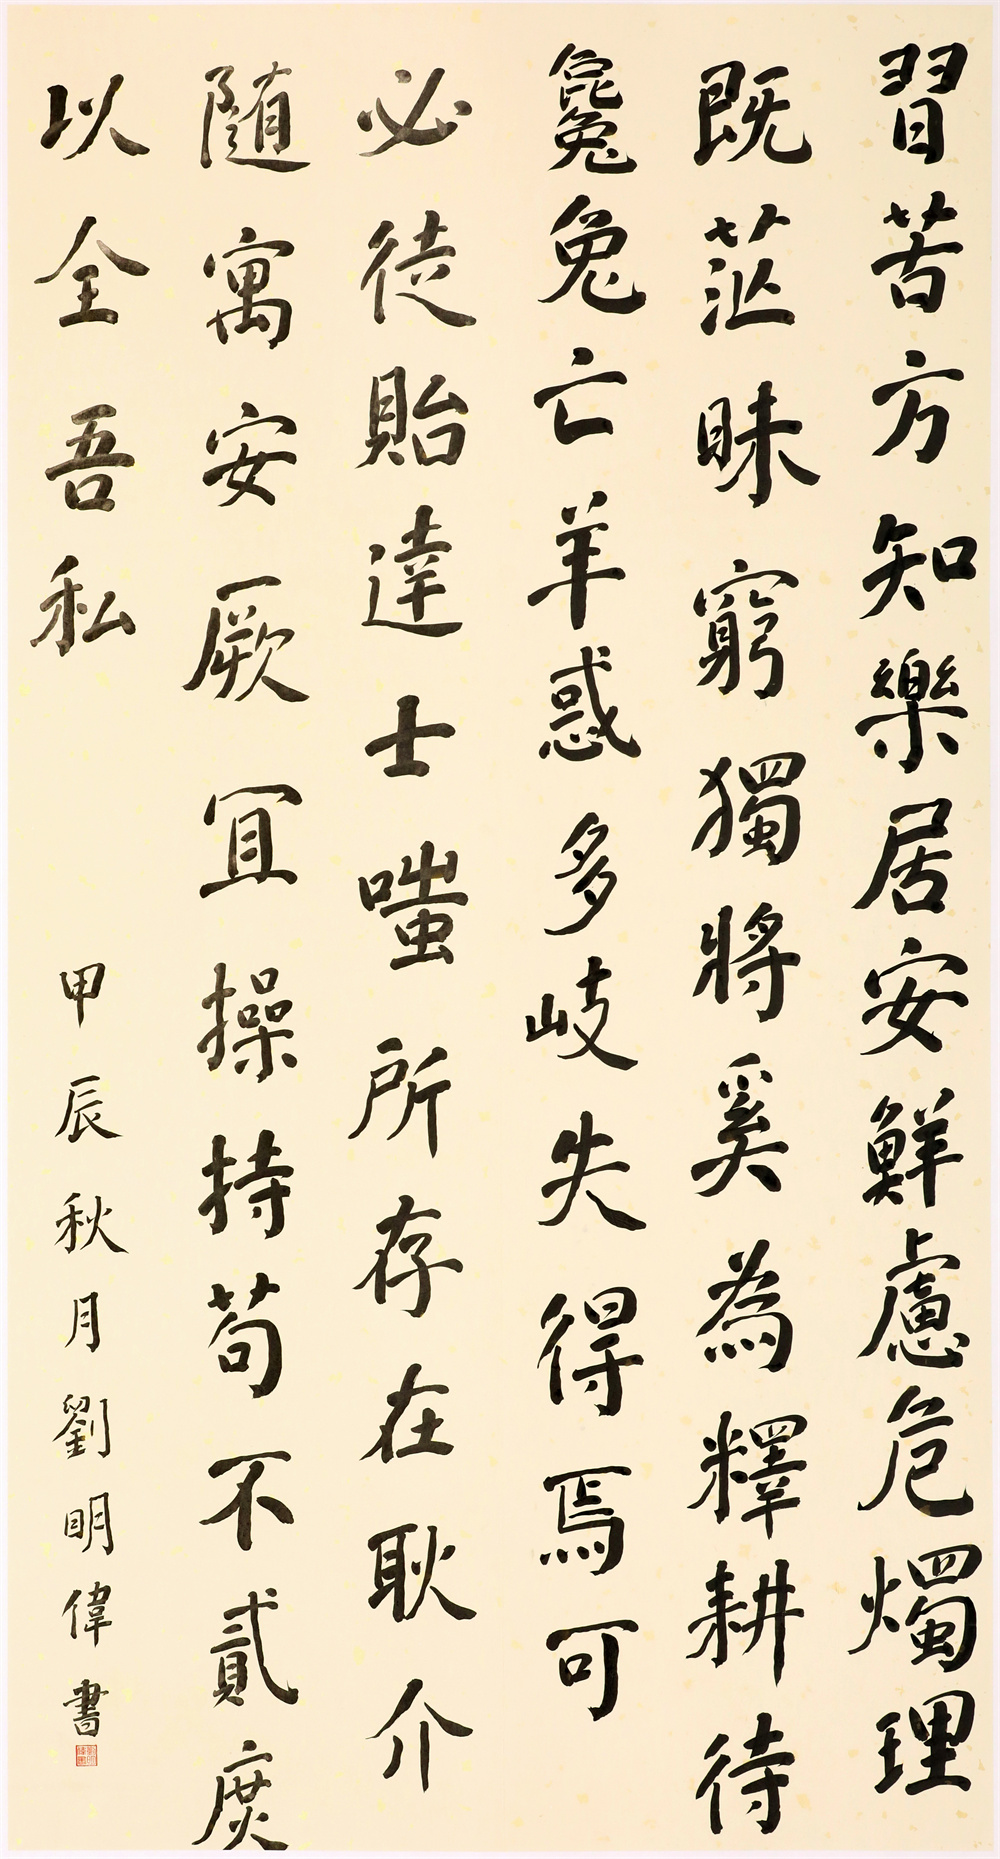 習苦方知樂居安鮮慮危燭理
既茫昧窮獨將奚為釋耕待
毚兔亡羊惑多岐失得焉可
必徒貽達士嗤所存在耿介
随寓安厥宜操持苟不貳庶
以全吾私
甲辰秋月劉明偉書